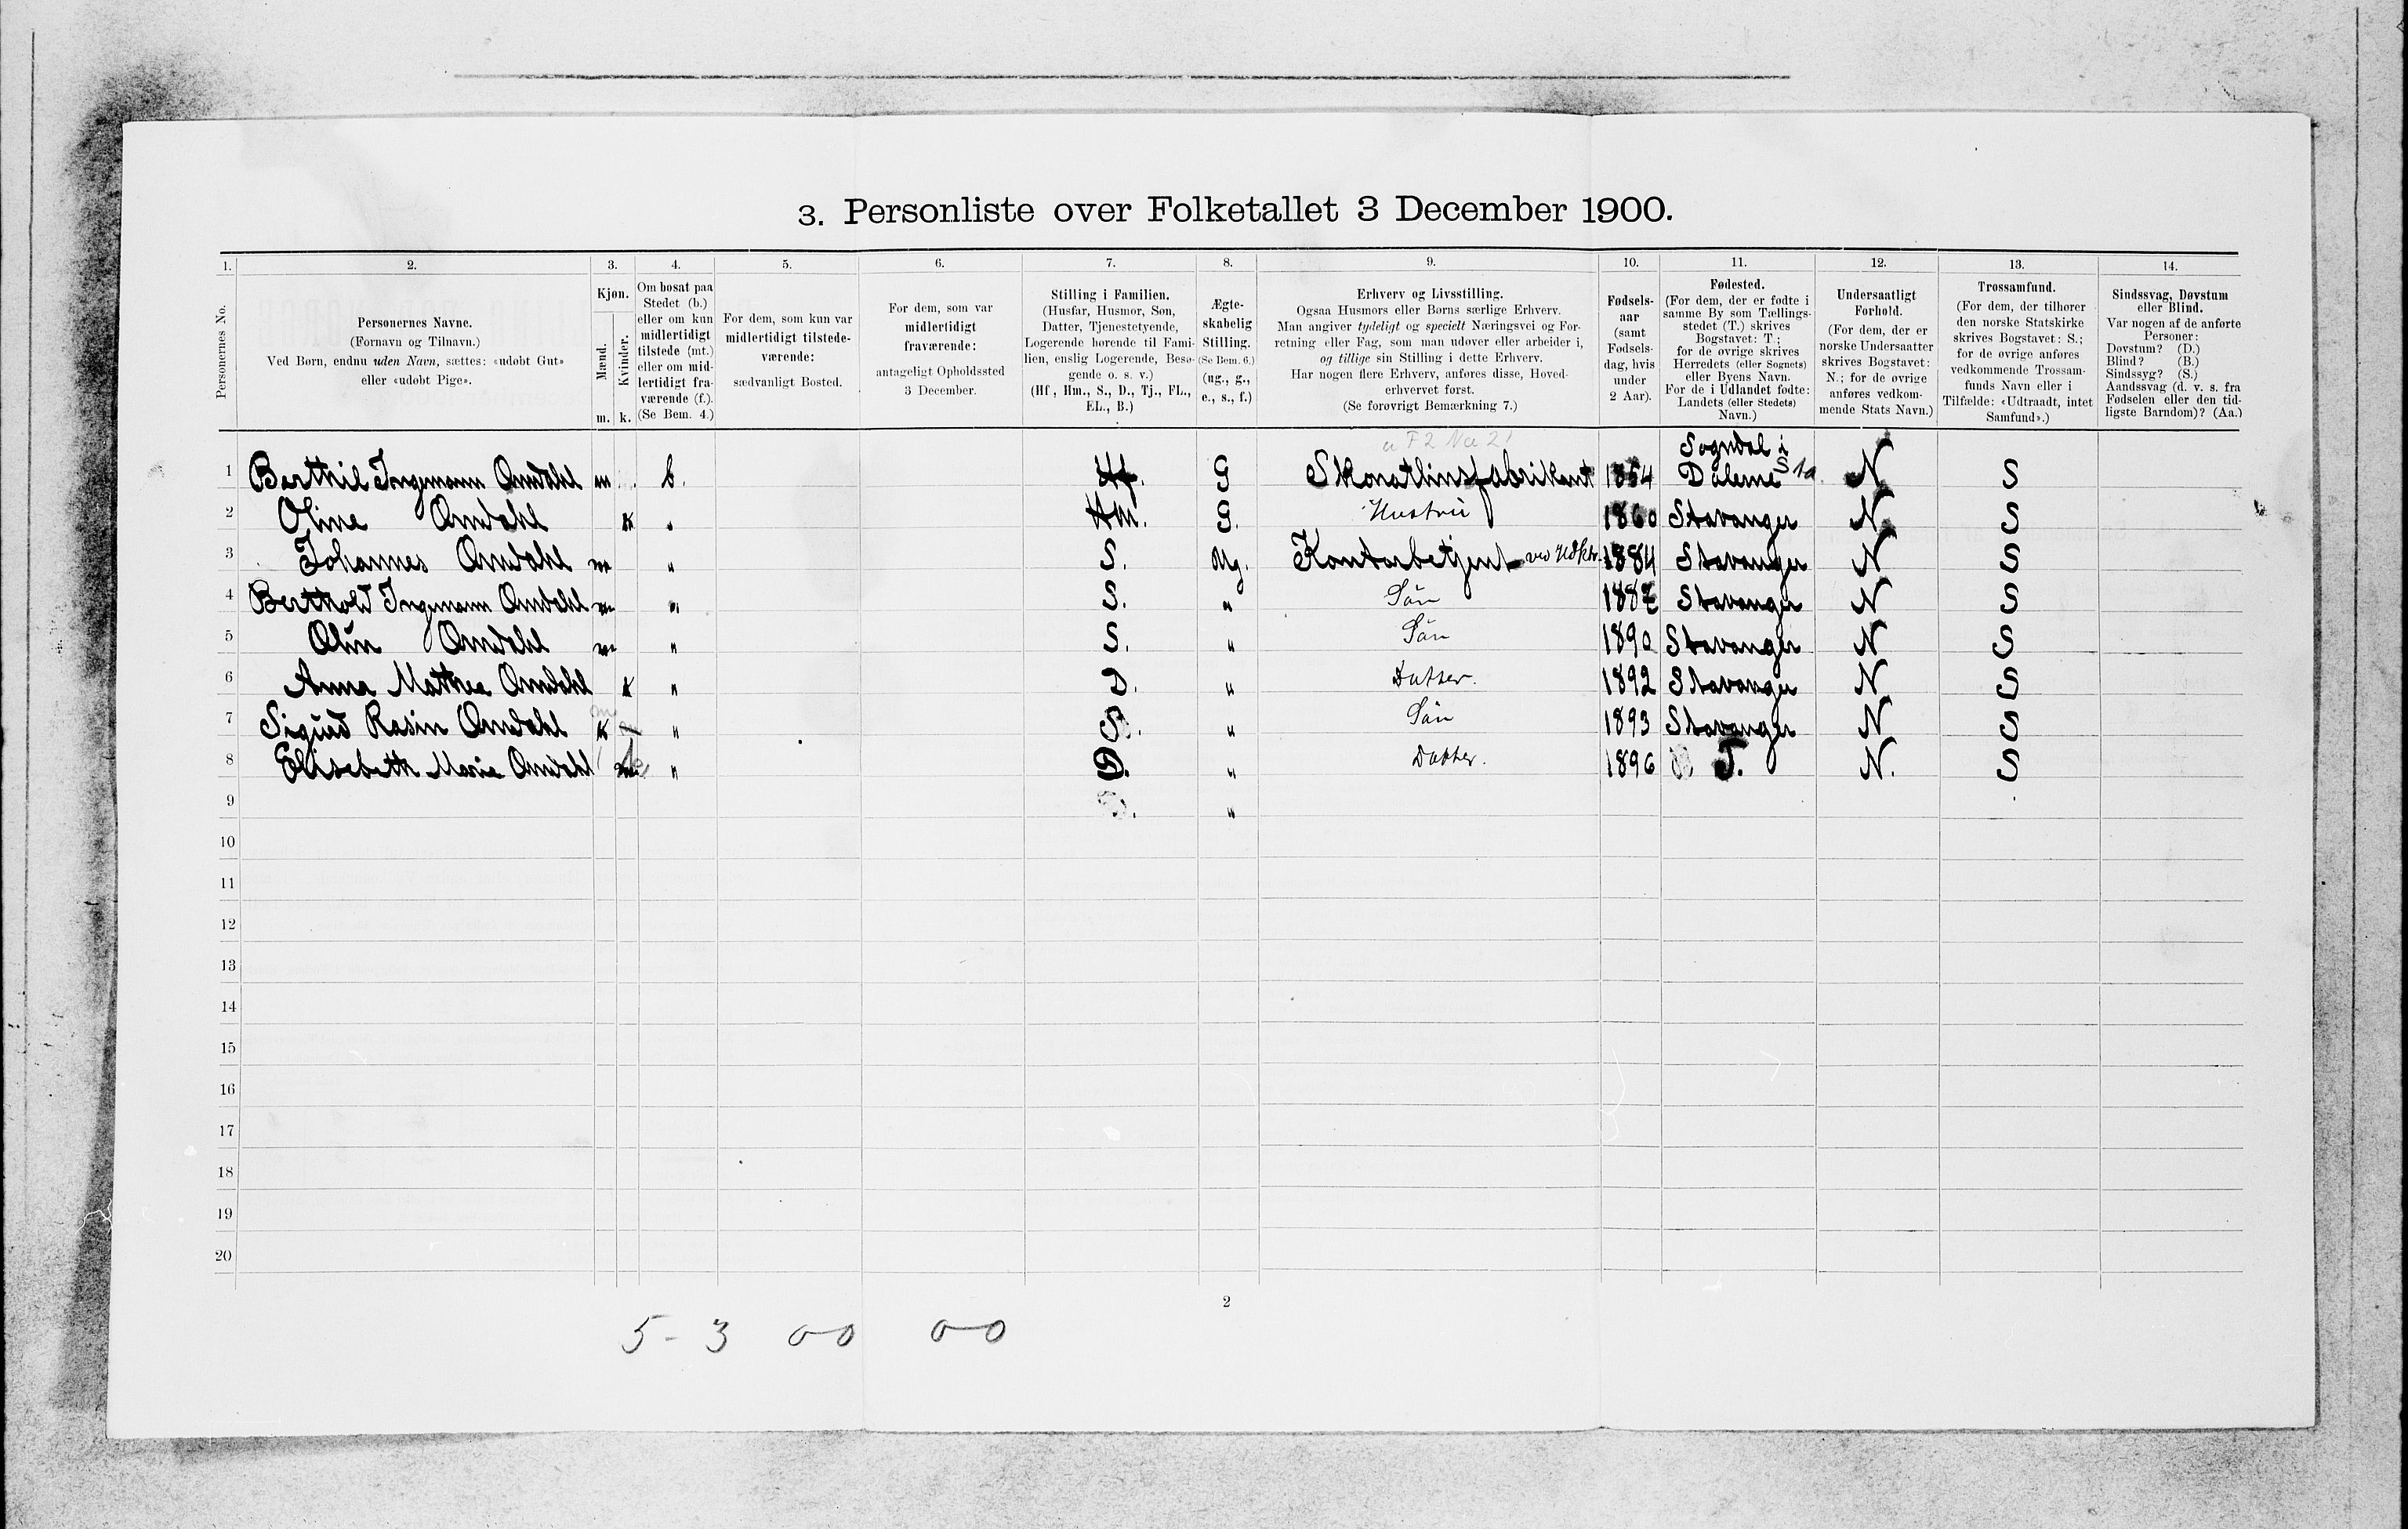 3. Personliste over Folketallet 3 December 1900.
1. 2. 3. 4. 5. 6. 7. 8. 9. 10. 11. 12. 13. 14.
Personernes No.
Personernes Navne.
(Fornavn og Tilnavn.)
Ved Børn, endnu uden Navn, sættes: «udøbt Gut»
eller «udøbt Pige».
Kjøn.
Mænd.
Kvinder.
m. k.
Om bosat paa
Stedet (b.)
eller om kun
midlertidigt
tilstede (mt.)
eller om mid-
lertidigt fra-
værende (f.).
(Se Bem. 4.)
For dem, som kun var
midlertidigt tilstede-
værende:
sædvanligt Bosted.
For dem, som var
midlertidigt
fraværende:
antageligt Opholdssted
3 December.
Stilling i Familien.
(Husfar, Husmor, Søn,
Datter, Tjenestetyende,
Logerende hørende til Fami-
lien, enslig Logerende, Besø-
gende o. s. v.)
(Hf, Hm., S., D., Tj., FL.,
EL., B.)
Ægte-
skabelig
Stilling.
(Se Bem. 6.)
(ug., g.,
e., s., f.)
Erhverv og Livsstilling.
Ogsaa Husmors eller Børns særlige Erhverv.
Man angiver tydeligt og specielt Næringsvei og For-
retning eller Fag, som man udøver eller arbeider i,
og tillige sin Stilling i dette Erhverv.
Har nogen flere Erhverv, anføres disse, Hoved-
erhvervet først.
(Se forøvrigt Bemærkning 7.)
Fødsels-
aar
(samt
Fødsels-
dag, hvis
under
2 Aar).
Fødested.
(For dem, der er fødte i
samme By som Tællings-
stedet (T.) skrives
Bogstavet: T.;
for de øvrige skrives
Herredets (eller Sognets)
eller Byens Navn.
For de i Udlandet fødte:
Landets (eller Stedets)
Navn.)
Undersaatligt
Forhold.
(For dem, der er
norske Undersaatter
skrives Bogstavet:
N.; for de øvrige
anføres vedkom-
mende Stats Navn.)
Trossamfund.
(For dem, der tilhører
den norske Statskirke
skrives Bogstavet: S.;
for de øvrige anføres
vedkommende Trossam-
funds Navn eller i
Tilfælde: «Udtraadt, intet
Samfund».)
Sindssvag, Døvstum
eller Blind.
Var nogen af de anførte
Personer:
Døvstum? (D.)
Blind? (B.)
Sindssyg? (S.)
Aandssvag (d. v. s. fra
Fødselen eller den tid-
ligste Barndom)? (Aa.)
Sogndal i
1 Berthil Ingemann Omdahl m b. Hf. G 1854 Dalerne N S
2 Oline Omdahl k " Hm. G. Hustrü 1860 Stavanger N S
3 Johannes Omdahl m " S. Ug. Kontorbetjent 1884 Stavanger N S
4 Berthold Ingemann Omdahl m " S. " Sön 1887 Stavanger N S
5 Omdahl m " S. " Sön 1890 Stavanger N S
6 Anna Mathea Omdahl k " D. " Datter. 1892 Stavanger N S
7 Sigurd Rasin Omdahl k " S. " Sön 1893 Stavanger N S
8 Elisabeth Marie Omdahl " D. " Datter. 1896 T. N. S
9 "
10
11
12
13
14
15
16
17
18
19
20
2
5-3 00 00